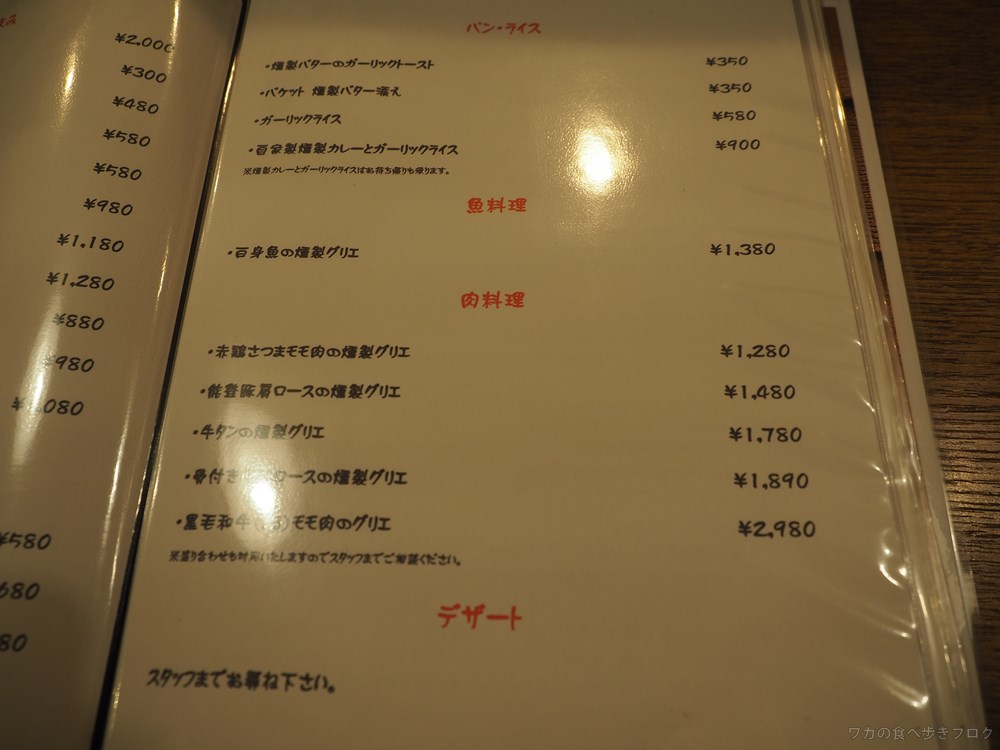 ¥2,000
¥300
¥480
¥580
¥580
¥980
¥1,180
¥1,280
¥880
¥980
080
¥580
680
80
パン・ライス
・燻製バターのガーリックトースト ¥350
・バケット 燻製バター添え ¥350
・ガーリックライス ¥580
・百家製燻製カレーとガーリックライス ¥900
※燻製カレーとガーリックライスはお持ち帰りも承ります。
魚料理
・白身魚の燻製グリエ ¥1,380
肉料理
・赤鶏さつまモモ肉の燻製グリエ ¥1,280
・能登豚肩ロースの燻製グリエ ¥1,480
・牛タンの燻製グリエ ¥1,780
・骨付き ロースの燻製グリエ ¥1,890
・黒毛和牛 モモ肉のグリエ ¥2,980
※盛り合わせも対応いたしますのでスタッフまでご相談ください。
デザート
スタッフまでお尋ね下さい。
ワカの食べ歩きブログ